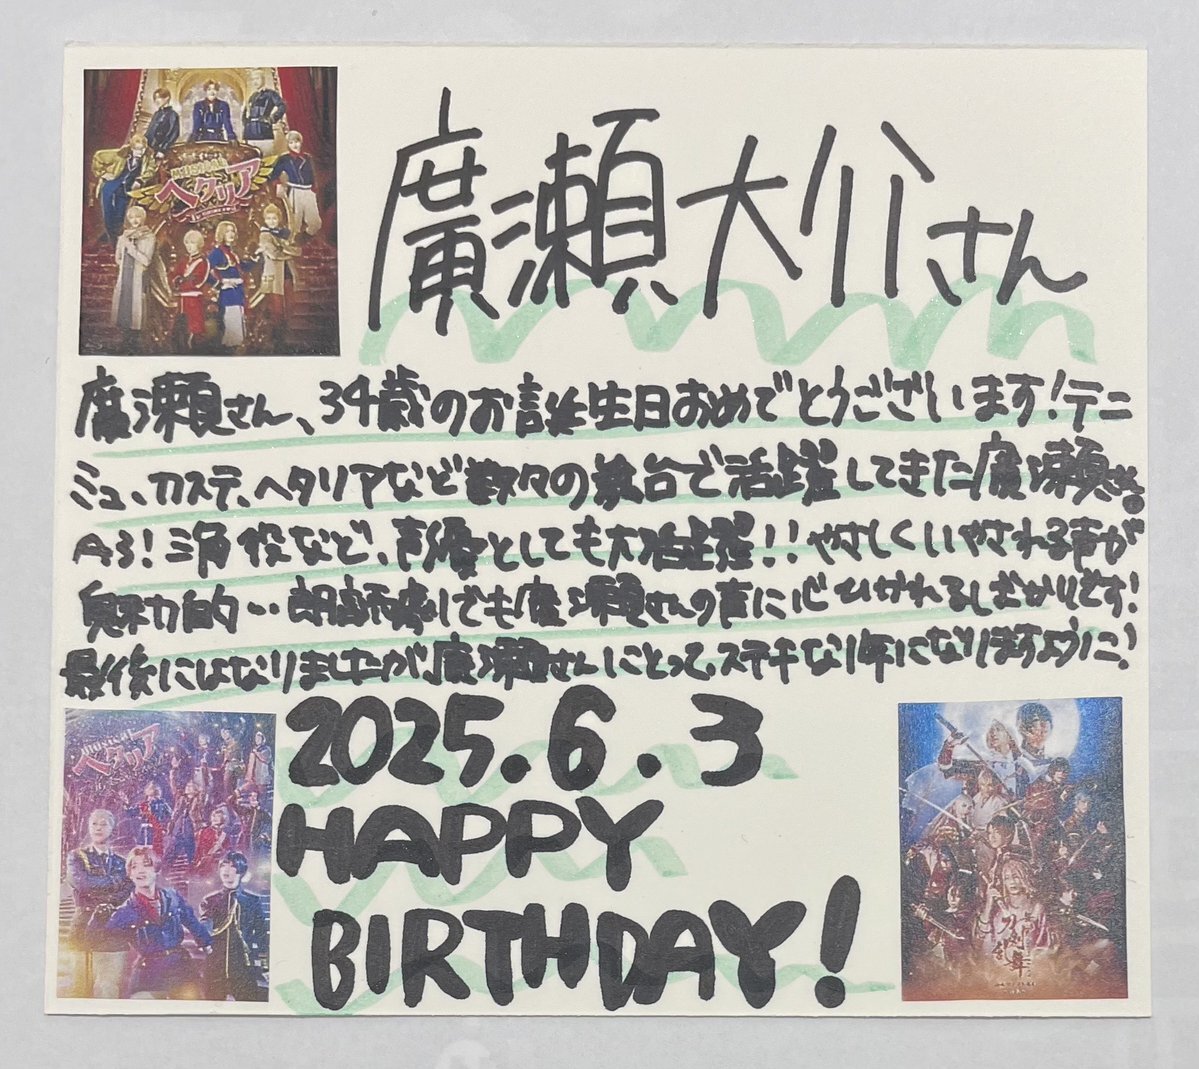 MUSICAL
ヘタリア
廣瀬大介さん
廣瀬さん、34歳のお誕生日おめでとうございます!テニ
ミュ、カステ、ヘタリアなど数々の舞台で活躍してきた廣瀬さん。
A3!三角役など、声優としても大活躍!!やさしくいやされる声が
魅力的…朗読劇でも廣瀬さんの声に心ひかれるしばかりです!
最後にはなりましたが、廣瀬さんにとって、ステキな1年になりますように!
musical
ヘタリア
2025.6.3
HAPPY
BIRTHDAY!
刀剣
乱舞